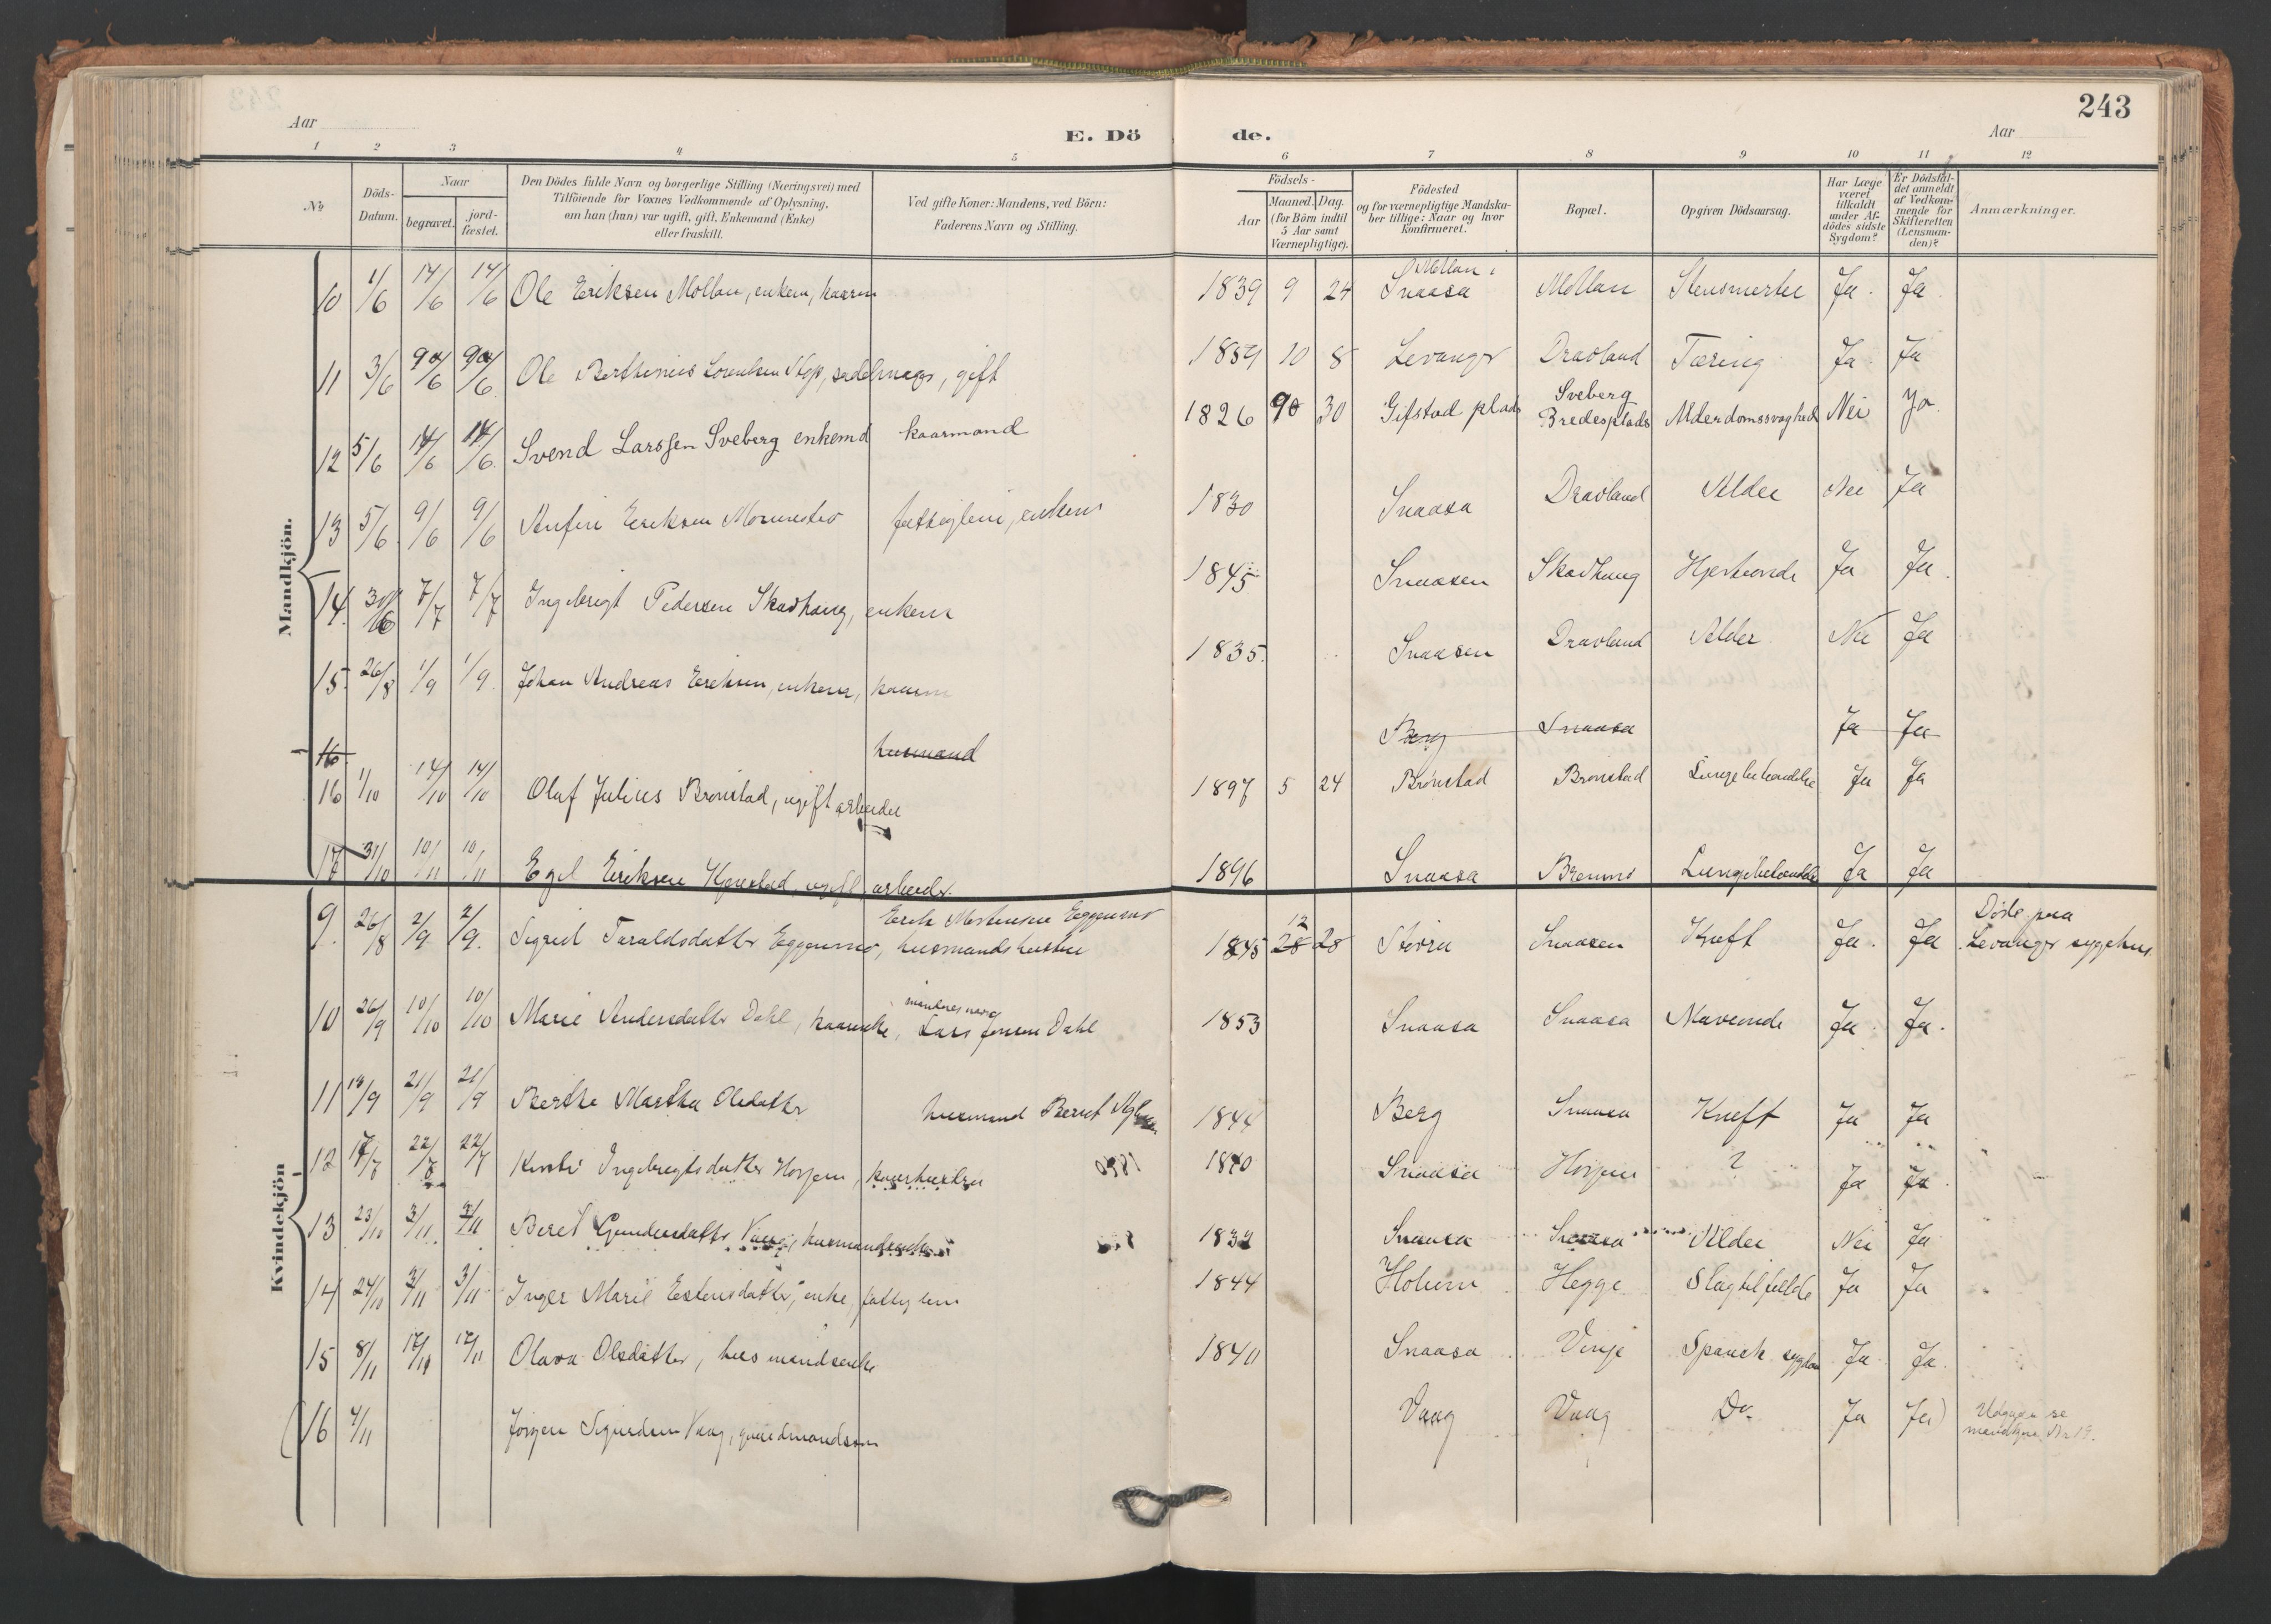 243
Aar
E. Dö
de.
Aar
1 2 3 4 5 6 7 8 9 10 11 12
No
Döds-Datum.
Naar
begravet.
jord-fæstet.
Den Dödes fulde Navn og borgerlige Stilling (Næringsvei) med
Tilföiende for Voxnes Vedkommende af Oplysning,
om han (hun) var ugift, gift, Enkemand (Enke)
eller fraskilt.
Ved gifte Koner: Mandens, ved Börn:
Faderens Navn og Stilling.
Födsels-
Aar
Maaned. Dag.
(for Börn indtil
5 Aar samt
Værnepligtige).
Födested
og for værnepligtige Mandska-
ber tillige: Naar og hvor
Konfirmeret.
Bopæl.
Opgiven Dödsaarsag.
Har Læge
været
tilkaldt
under Af-
dödes sidste
Sygdom?
Er Dödsfal-
det anmeldt
af Vedkom-
mende for
Skifteretten
(Lensman-
den)?
Anmærkninger.
Mandkjön.
10 1/6 14/6 14/6 Ole Eriksen Mollan, enkem, kaarm 1839 9 24 Mollan i Snaasa Mollan Ja Ja
11 3/6 9/6 9/6 Ole Berthinius Lorentsen, sadelmager, gift 1859 10 8 Levanger Dravland Tæring Ja Ja
12 5/6 14/6 14/6 Svend Larssen Sveberg enkemd kaarmand 1826 30 Gifstad plads Sveberg Bredesplads Alderdomssvaghed Nei Ja
13 5/6 9/6 9/6 Eriksen fattiglem, enkem 1830 Snaasa Dravland Alder Nei Ja
14. 30/6 7/7 7/7 Ingebrigt Pedersen Skavhaug, enkem 1845 Snaasen Skavhaug Ja Ja
15. 26/8 1/9 1/9 Johan Andreas Eriksen, enkem, kaarm 1835. Snaasen Dravland Alder Nei Ja
16 husmand Berg Snaasa Ja Ja
16 1/10 14/10 14/10 Olaf Julius Brønstad, ugift arbeider 1897 5 24 Brønstad Brønstad Lungebetændelse Ja Ja
17 31/10 10/11 10/11 Egil Eriksen, ugift arbeider 1896 Snaasa Lungebetændelse Ja Ja
Kvindekjön
9. 26/8 2/9 2/9. Sigrid Taraldsdatter Eggenmo, husmandshustru Erik Mortensen Eggenmo 1845 12 28 28 Snaasen Kræft Ja Ja Døde paa Levanger sygehus
10 26/9 10/10 10/10 Marie Andersdatter Dahl, kaarenke, mandens navn Lars Jonsen Dahl 1853 Snaasa Snaasa Maveonde Ja Ja
11 21/9 21/9 Berthe Martha Olsdatter husmand Bernt 1844 Berg Snaasa Kræft Ja Ja
12 22/7 Ingebrigtsdatter, kaarhustru Snaasa ? Ja Ja
13 23/10 3/11 3/11 Beret Gundersdatter, husmandsenke Snaasa Snaasa Alder Nei Ja
14 24/10 3/11 3/11 Inger Marie Estensdatter, enke, fattiglem 1844 Holum Hegge Slagtilfælde Ja Ja
15 8/11 17/11 17/11 Olava Olsdatter, husmandsenke 1840 Snaasa Vinje Spansk sygdom Ja Ja
(16 4/11 Jørgen Sigurdsen Vaag, gaardmandsøn Vaag Vaag Do Ja Ja) Udgaar, se mandkjøn Nr 19.